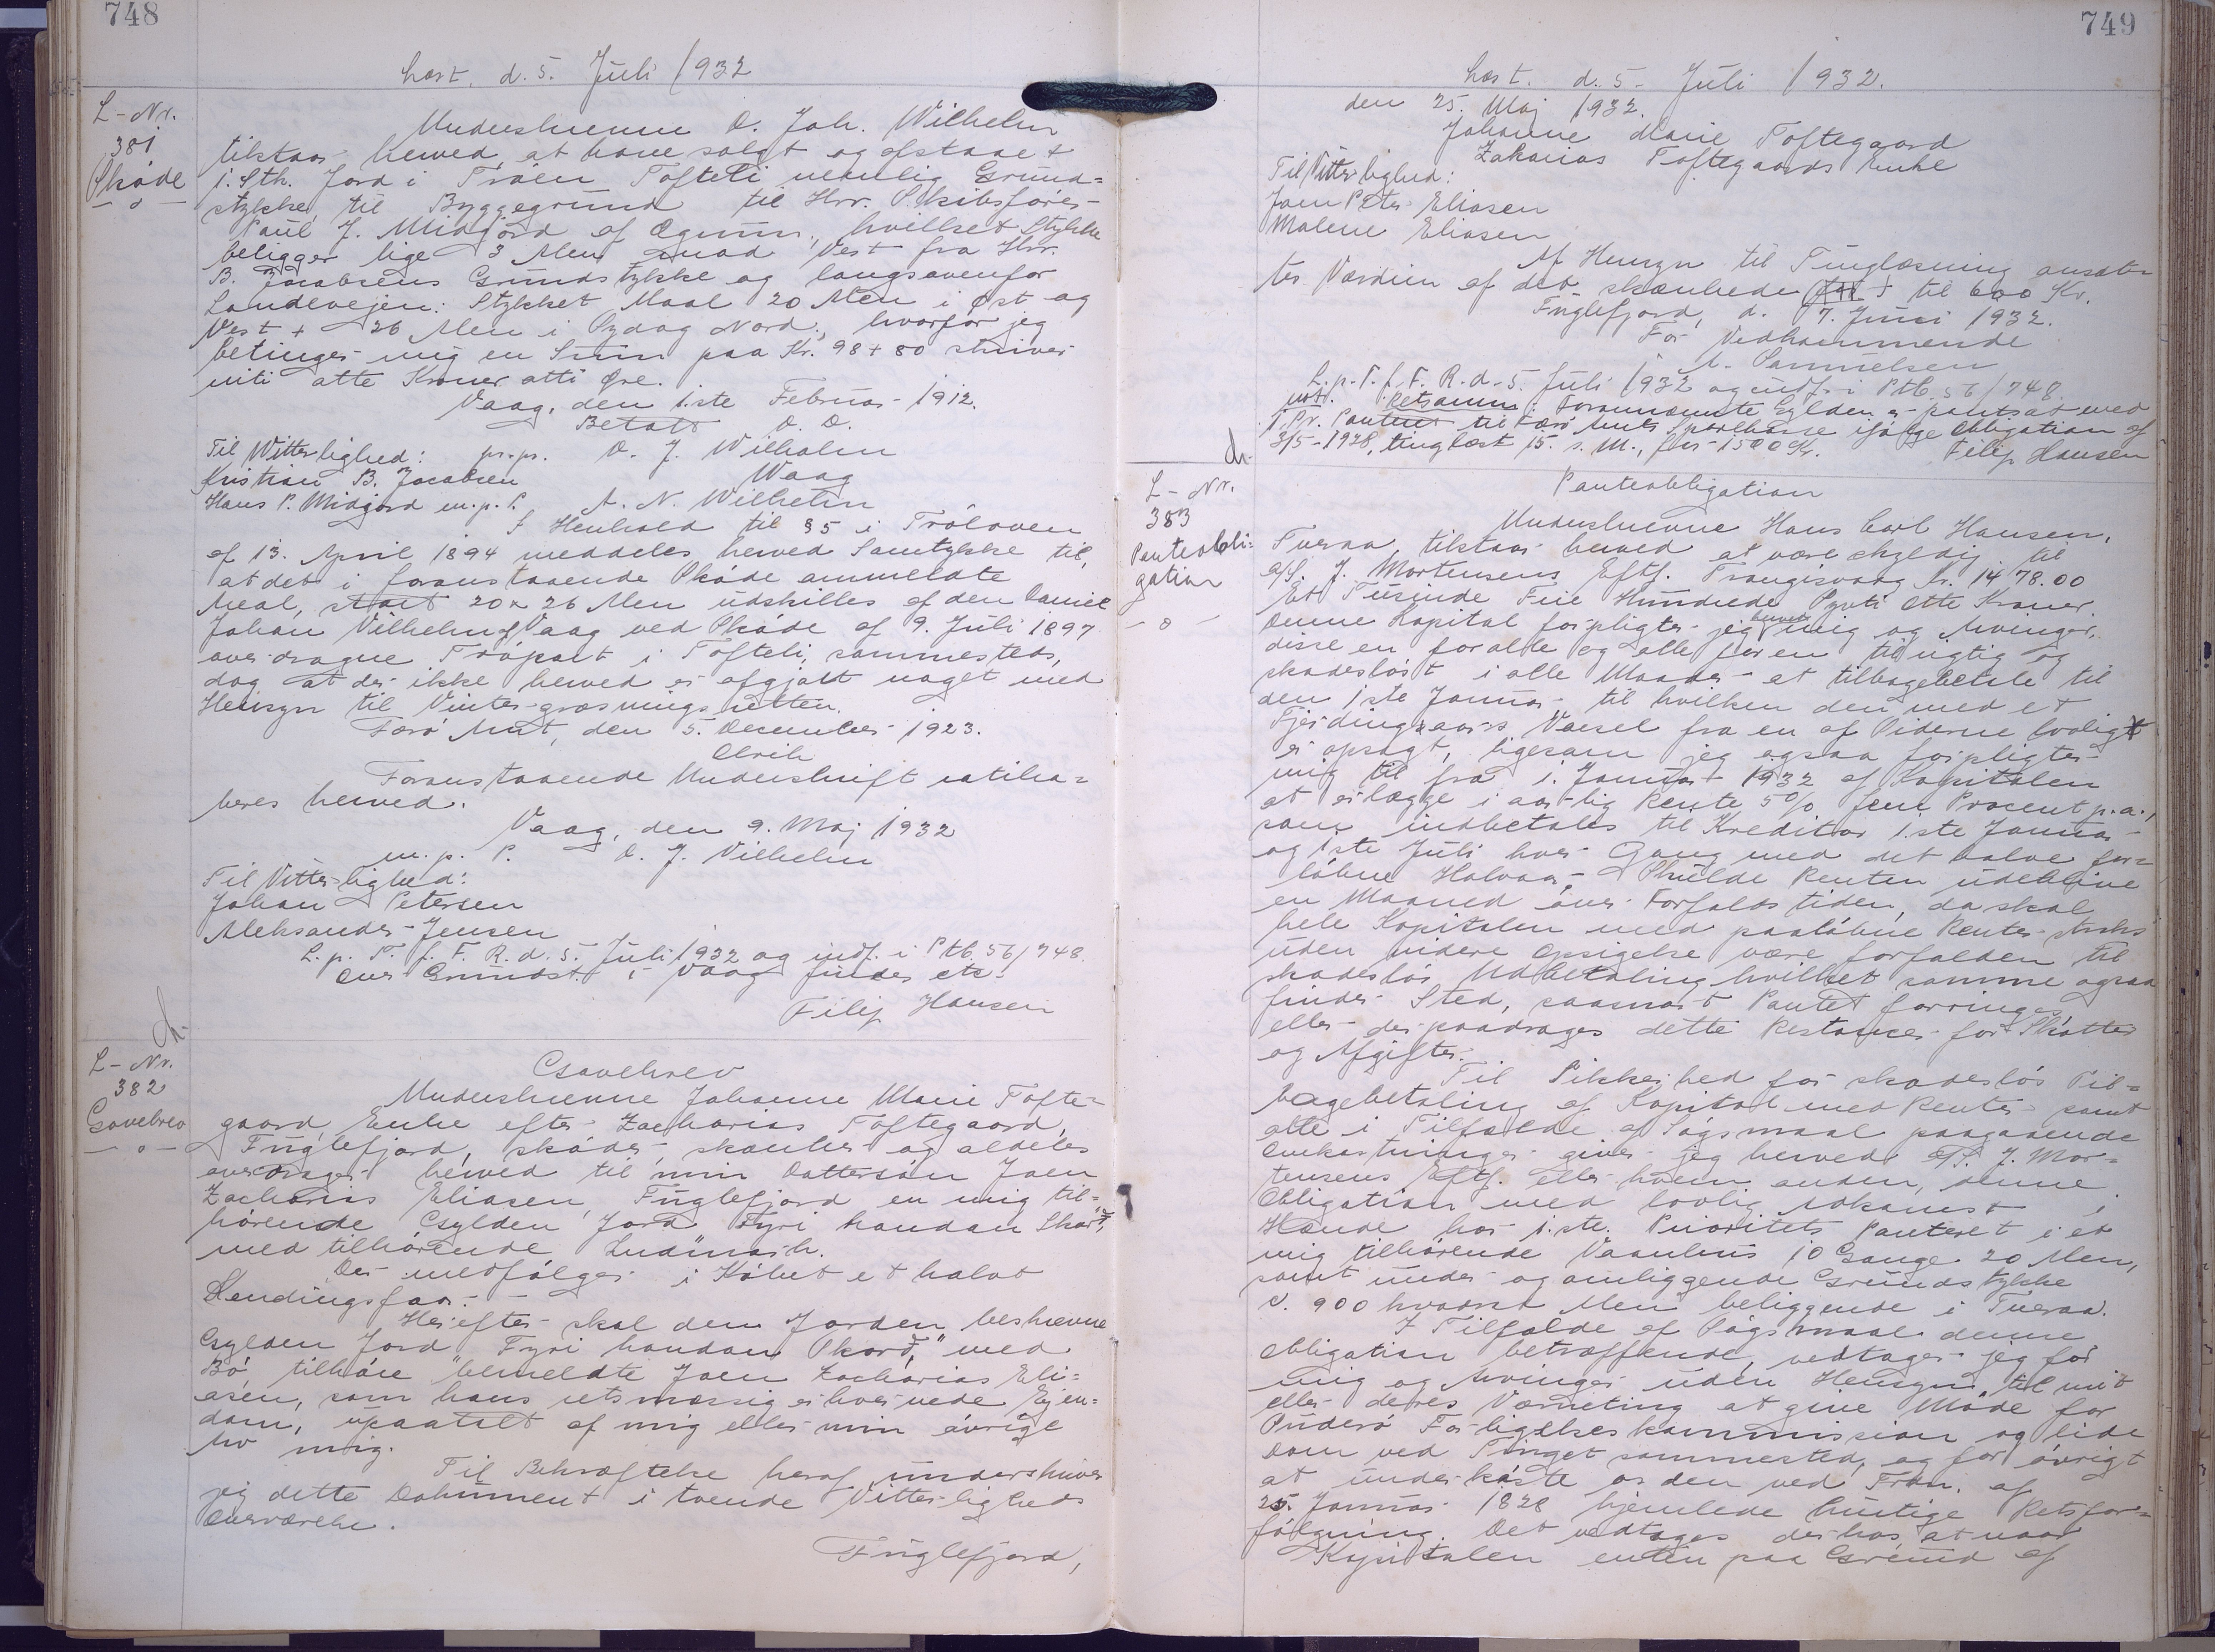 748
Læst. d. 5. Juli 1932
L-Nr.
381
Skøde
Underskrevne D. Joh. Wilhelm
tilstaar herved at have solgt og afstaaet
1. Stk. Jord i Tróen Tofteli nemlig Grund=
stykke til Byggegrund til Hrr. Skibsfører-
Paul J. Midjord af Øgnum, hvilket Stykke
beligger lige 3 Alen Vest fra Hrr.
B. Jacobsens Grundstykke og langsovenfor
Landevejen: Stykket Maal 20 Alen i Øst og
Vest + 26 Alen i Syd og Nord, hvorfor jeg
betinger mig en Sum paa Kr. 98 + 80 skriver
niti otte Kroner otti Øre.
Vaag, den 1.ste Februar 1912.
Betalt D. D.
Til Witterlighed: pr.pr. D. J. Wilhelm
Kristian B. Jacobsen Waag
Hans P. Midjord m.p.P. A. N. Wilhelm
I Henhold til §5 i Tróloven
af 13. April 1894 meddeles herved Samtykke til,
at det i foranstaaende Skøde ommeldte
Areal, stort 20 x 26 Alen udskilles af den Daniel
Johan Vilhelm, Vaag ved Skøde af 9. Juli 1897
overdragne Trópart i Tofteli, sammesteds,
dog at der ikke herved er afgjort noget med
Hensyn til Vintergræsningsretten.
Færø Amt, den 5. December 1923.
Elrih
Foranstaaende Underskrift ratiha=
beres herved.
Vaag, den 9. Maj 1932
m. p. P. D. J. Vilhelm
Til Vitterlighed:
Johan Petersen
Aleksander Jensen
L. p. T. f. F. R. d. 5. Juli 1932 og indf. i Ptb. 56/748.
Over Grundst. i Vaag findes etc.
Filip Hansen
L-Nr.
382
Gavebrev
Gavebrev
Underskrevne Johanne Marie Tofte=
gaard, Enke efter Zacharias Toftegaard,
Fuglefjord, skøder, skænker og aldeles
overdrager herved til min Dattersøn Joen
Zacharias Eliasen, Fuglefjord en mig til=
hørende Gylden Jord "Fyri handan Skorð",
med tilhørende Indmark.
Der medfølger i Købet et halvt
Kendingsfaar.
Herefter skal den Jorden beskrevne
Gylden Jord "Fyri handan Skorð," med
Bø, tilhøre bemeldte Joen Zacharias Eli=
asen, som hans retsmæssig erhvervede Ejen=
dom, upaatalt af mig eller min øvrige
Arv mig.
Til Bekræftelse heraf underskriver
jeg dette Dokument i tvende Vitterligheds
Overværelse.
Fuglefjord,
749
Læst. d. 5. Juli 1932.
den 25. Maj 1932.
Johanne Marie Toftegaard
Zakarias Toftegaards Enke
Til Vitterlighed:
Joen Peter Eliasen
Malene Eliasen
Af Hensyn til Tinglæsning ansæt=
tes Værdien af det skænkede til 600 Kr.
Fuglefjord, d. 7. Juni 1932.
For Vedkommende
A. Samuelsen
L. p. T. f. F. R. d. 5. Juli 1932 og indf. i Ptb. 56/748.
Retsanm: Forannævnte Gylden er pantsat med
1. Pr. Panteret til Færø Amts Sparekasse ifølge Obligation af
3/5-1928, tinglæst 15. s. M., for 1500 Kr. Filip Hansen
L-Nr.
383
Panteobli=
gation
Panteobligation
Underskrevne Hans Carl Hansen,
Tveraa, tilstaar herved at være skyldig til
A/S. J. Mortensens Eftf. Trangisvaag Kr. 1478.00
Et Tusinde Fire Hundrede Syvti Otte Kroner.
Denne Kapital forpligter jeg herved mig og Arvinger,
disse en for alle og alle for en til rigtig og
skadesløst i alle Maader at tilbagebetale til
den 1ste Januar til hvilken den med et
Fjerdingaars Varsel fra en af Siderne lovligt
er opsagt, ligesom jeg ogsaa forpligter
mig til fra 1. Januar 1932 af Kapitalen
at erlægge i aarlig Rente 5% fem Procent p.a.,
som indbetales til Kreditor 1.ste Januar
og 1ste Juli hver Gang med det halve for=
løbne Halvaar. Skulde Renten udeblive
en Maaned over Forfaldstiden, da skal
hele Kapitalen med paaløbne Renter straks
uden videre Opsigelse være forfalden til
skadesløs Udbetaling hvilket samme ogsaa
finder Sted, saasnart Pantet forringes
eller der paadrages dette Restancer for Skatter
og Afgifter.
Til Sikkerhed for skadesløs Til=
bagebetaling af Kapital med Renter samt
alle i Tilfælde af Søgsmaal paagaaende
Omkostninger giver jeg herved A/S. J. Mor=
tensens Eftf. eller hvem anden, denne
Obligation med lovlig Adkomst i
Hænde har 1.ste. Prioritets Panteret i et
mig tilhørende Vaanhus 10 Gange 20 Alen,
samt under og omliggende Grundstykke
c. 900 kvadrat Alen beliggende i Tveraa.
I Tilfælde af Søgsmaal denne
Obligation betræffende, vedtager jeg for
mig og Arvinger uden Hensyn til mit
eller deres Værneting at give Møde for
Suderø Forligelseskommission og lide
Dom ved Tinget sammested, og for øvrigt
at underkaste os den ved Frdn. af
25. Januar 1828 hjemlede hurtige Retsfor=
følgning. Det vedtages derhos, at naar
Kapitalen enten paa Grund af